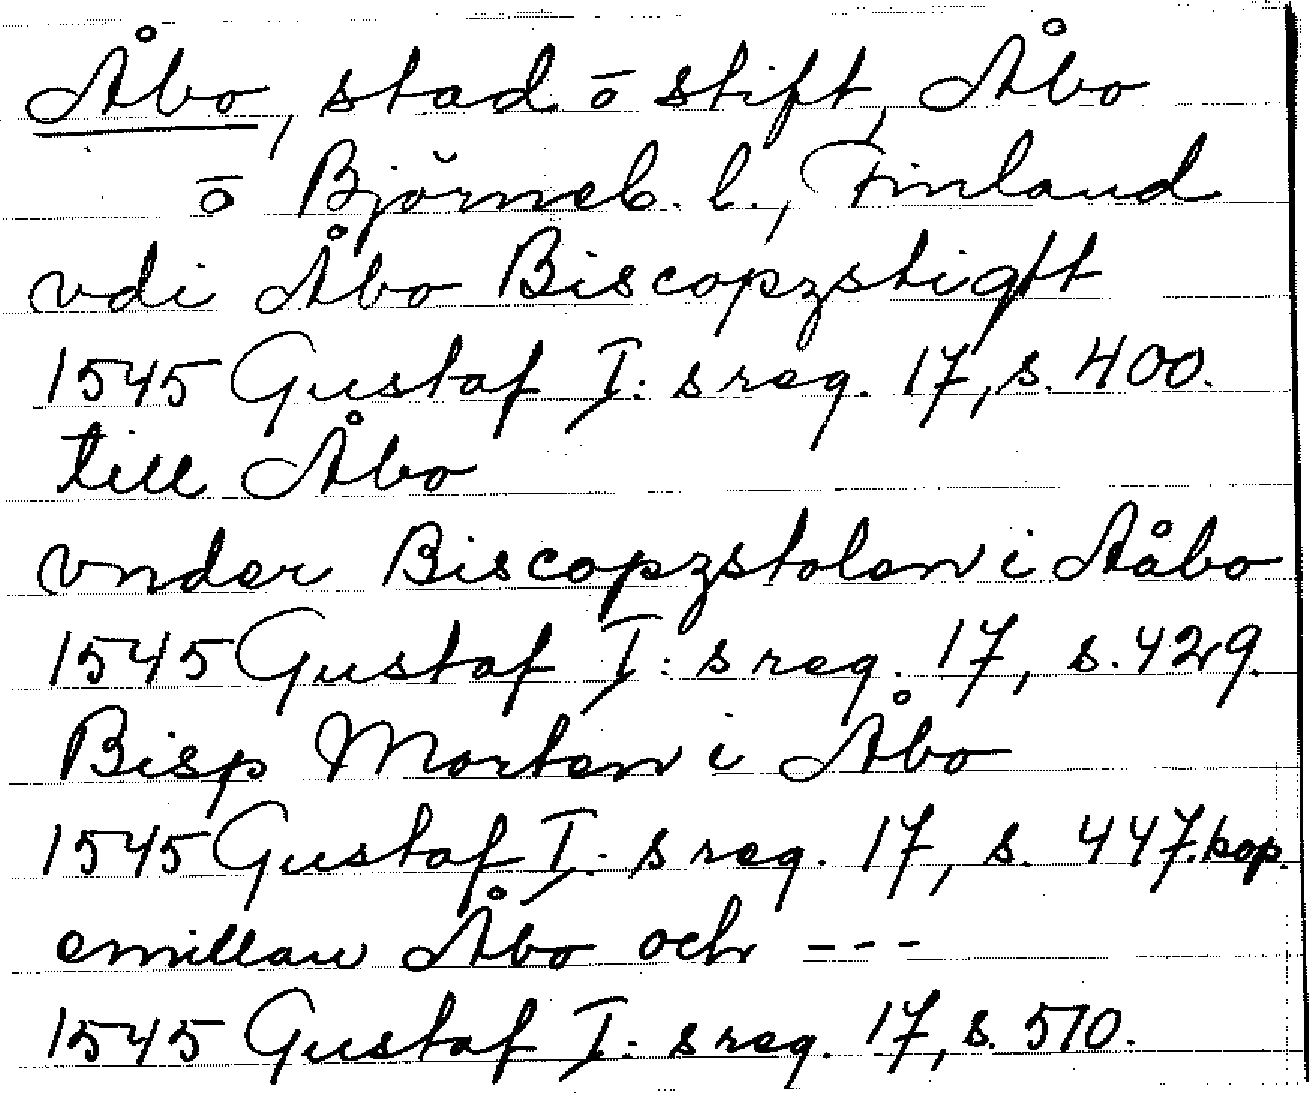 Åbo, stad o stift, Åbo
o Björneb. l., Finland
vdi Åbo Biscopzstigtt
1545 Gustaf I: s reg. 17, s. 400.
till Åbo
vnder Biscopzstolen i Aåbo
1545 Gustaf I: s reg. 17, s. 429.
Bisp Morten i Åbo
1545 Gustaf I: s reg. 17, s. 447. kop.
emillan Åbo och ---
1545 Gustaf I: s reg. 17, s. 510.